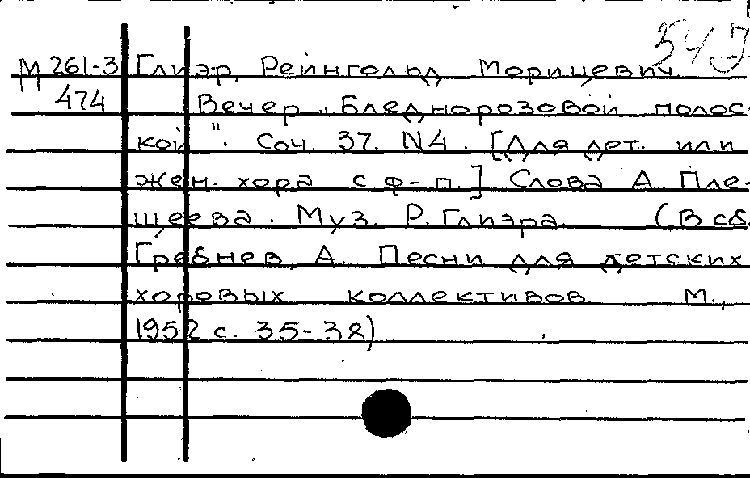 542
М 261-3 Глиэр, Рейнгольд Морицевич.
474 Вечер „Бледнорозовой полос-
кой". Соч. 37. N4. [Для дет. или
жен. хора с ф-п.] Слова А. Пле-
щеева. Муз. Р. Глиэра. (В сб.
Гребнев, А. Песни для детских
хоровых коллективов. М.,
1952 с. 35-38)